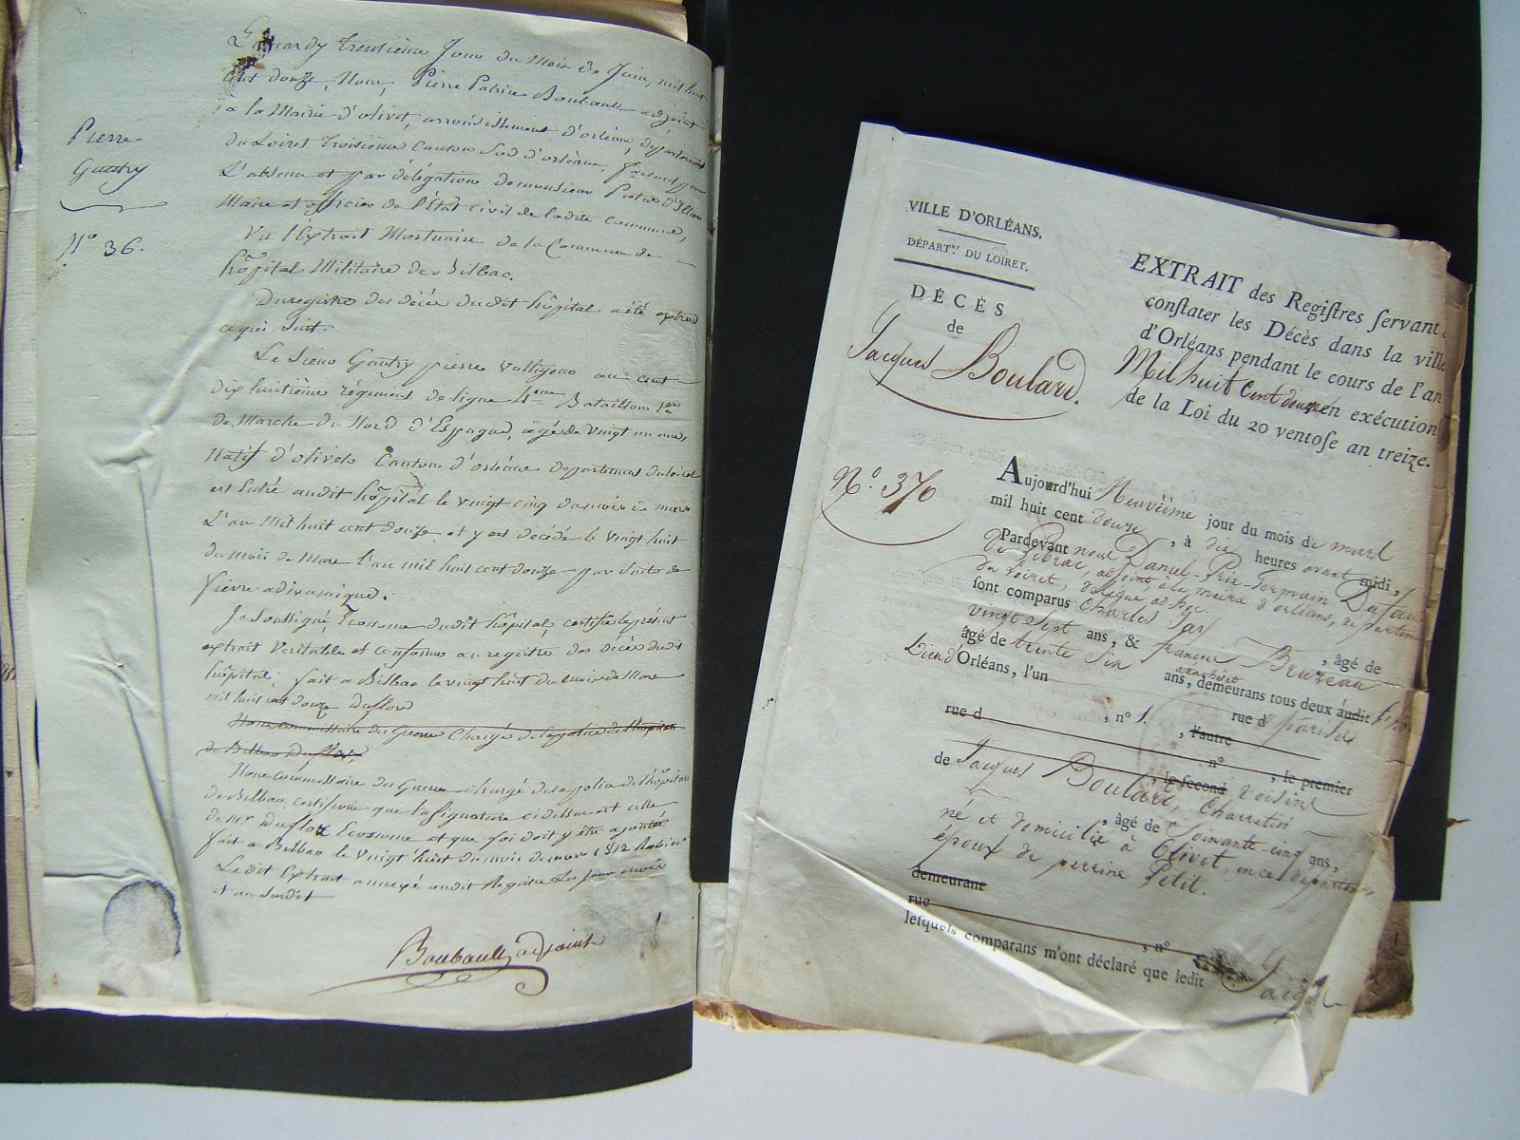 Pierre
Gautry
N° 36.
Le mardy trentième Jour du Mois de Juin, mil huit
cent douze, Nous, Pierre Patrice Boubault adjoint
à la Mairie d'olivet, arrondissement d'orléans, département
du Loiret troisième Canton Sud d'orléans,
L'absence et par délégation de monsieur
Maire et officier de l'État civil de ladite commune,
Vu l'Extrait Mortuaire de la Commune de
hôpital Militaire de Bilbao.
Du registre des décès dudit hôpital a été extrait
ce qui suit.
Le Sieur Gautry pierre voltigeur au cent
dix huitième régiment de ligne 4eme Bataillon 1er
de Marche du Nord d'Espagne, âgé de vingt un ans,
Natif d'olivets Canton d'orléans département du loiret
est entré audit hôpital le vingt cinq du mois de mars
L'an Mil huit cent douze et y est décédé le vingt huit
du mois de Mars l'an mil huit cent douze par suite de
fievre adinamique.
Je soussigné, Econome dudit hôpital, certifie le présent
extrait véritable et conforme au registre des décès dudit
hôpital, fait à Bilbao le vingt huit du mois de Mars
mil huit cent douze duflos
Nous commissaire des Guerres Chargé de la police de l'hôpital
de Bilbao
Nous commissaire des Guerres chargé de la police de l'hôpital
de Bilbao, certifions que la signature ci dessus est celle
de Mr Duflos Econome et que foi doit y être ajoutée
fait à Bilbao le vingt huit du mois de mars 1812
Ledit Extrait annexé audit Registre Les jour
et an susdit
Boubault adjoint
VILLE D'ORLÉANS.
DÉPARTNT. DU LOIRET.
DÉCÈS
de
Jacques Boulard.
N° 376
EXTRAIT des Regiſtres ſervant
conſtater les Décès dans la ville
d'Orléans pendant le cours de l'an
Mil huit Cent douze en exécution
de la Loi du 20 ventoſe an treize.
Aujourd'hui Neuvième jour du mois de mars
mil huit cent douze, à dix heures avant midi,
Pardevant nous Daniel-Prix-Germain Dufaur
de Pibrac, adjoint à la mairie d'orléans, département
du Loiret, délégué
ſont comparus Charles , âgé de
vingt Sept ans, & françois Bruzeau
âgé de trente Six ans, demeurans tous deux audit
Lieu d'Orléans, l'un rue d
rue d , n° 1. , l'autre
, n° , le premier
, le ſecond voisins
de Jacques Boulard, Charretier
, âgé de Soixante-cinq ans,
né et domicilié à Olivet, en ce département,
époux de perrine Petit.
demeurant
rue , n°
leſquels comparans m'ont déclaré que ledit